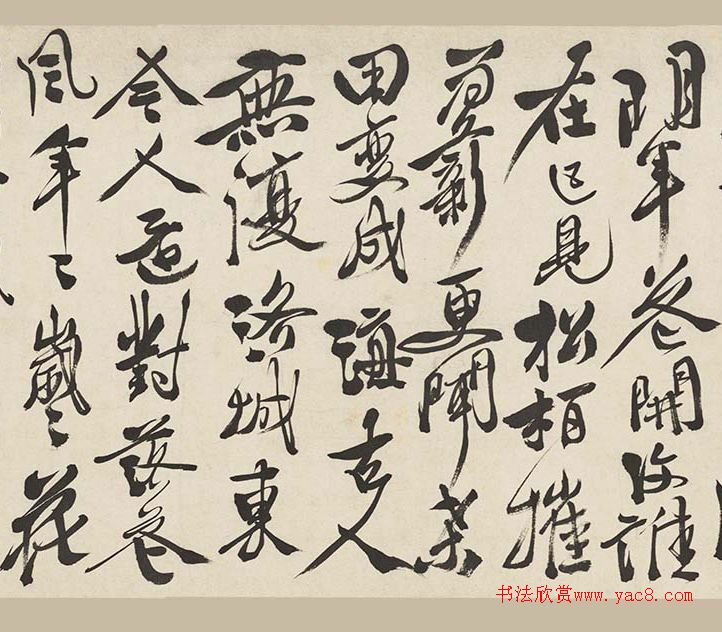 明年花開復誰
在已見松柏摧
為薪更聞桑
田變成海古人
無復洛城東
今人還對落花
風年々歲々花
书法欣赏www.yac8.com